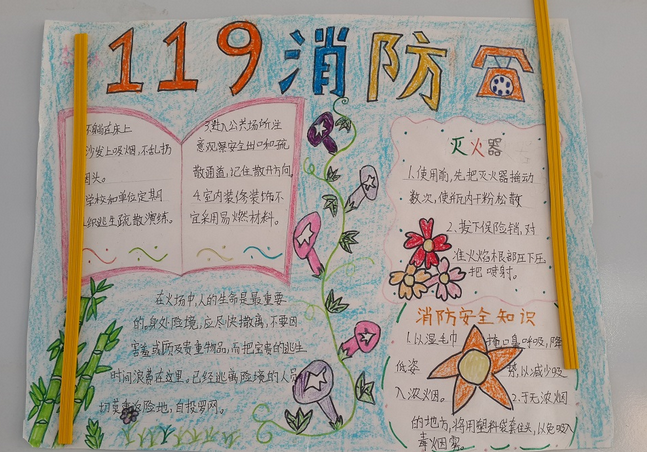 119消防
躺在床上
沙发上吸烟,不乱扔
烟头。
学校和单位定期
织逃生疏散演练。
3.进入公共场所注
意观察安全出口和疏
散通道,记住散开方向
4.室内装修装饰不
宜采用易燃材料。
灭火器
1.使用前,先把灭火器摇动
数次,使瓶内干粉松散
2.拨下保险销,对
准火焰根部压下压
把喷射。
在火场中,人的生命是最重要
的,身处险境,应尽快撤离,不要因
害羞或顾及贵重物品,而把宝贵的逃生
时间浪费在这里。已经逃离险境的人员
切莫重返险地,自投罗网。
消防安全知识
1.以湿毛巾
捂口鼻呼吸,降
低姿
势,以减少吸
入浓烟。
2.于无浓烟
的地方,将用塑料袋套住头,以免吸入
毒烟雾。